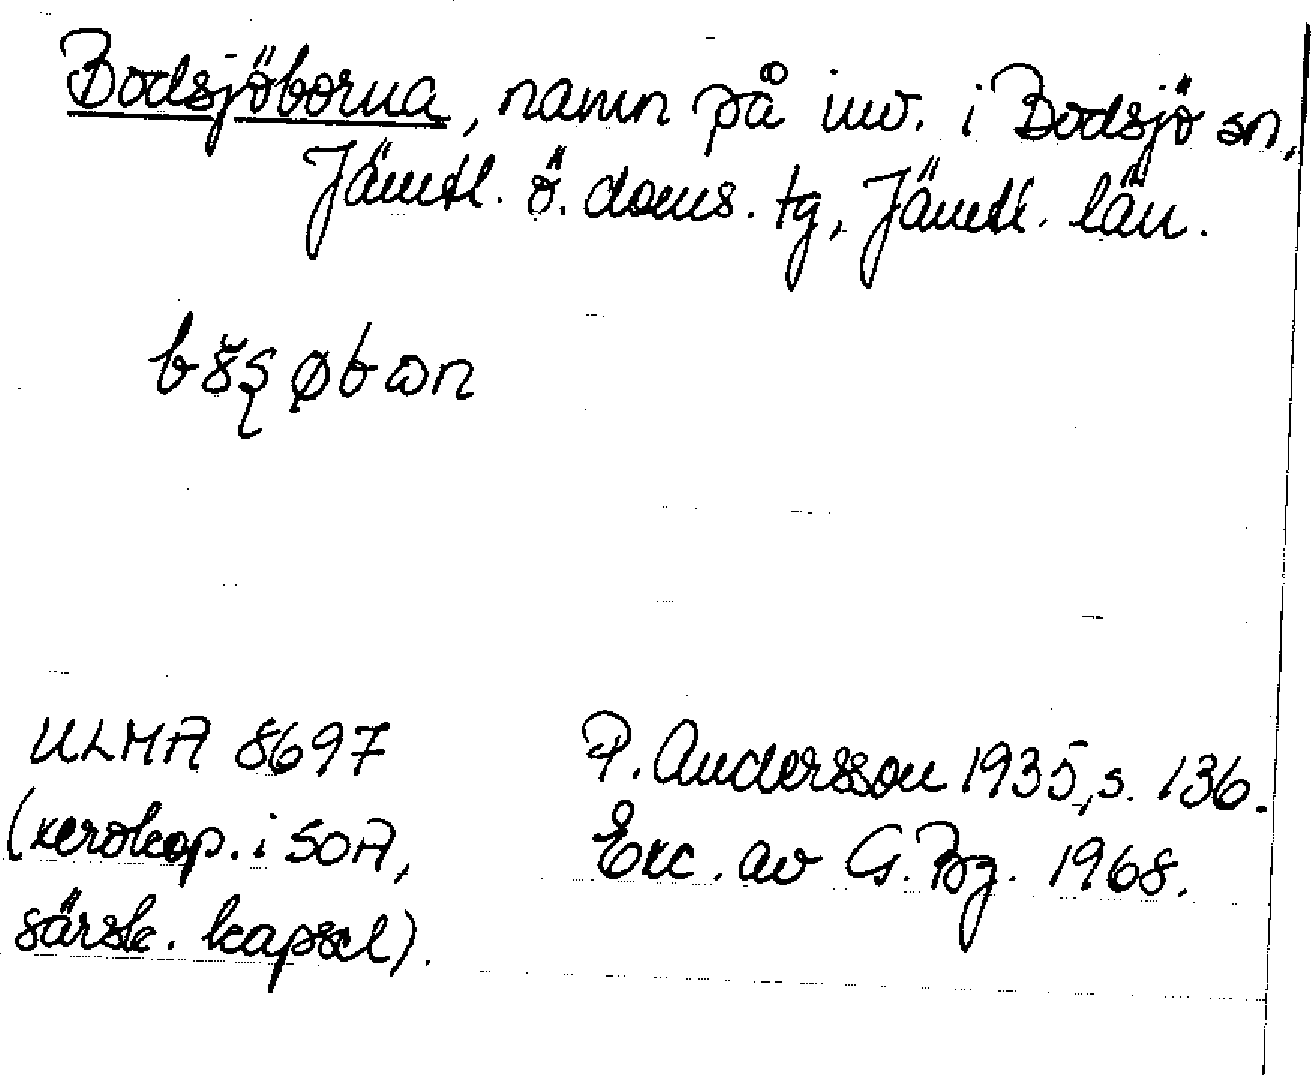 Bodsjöborna, namn på inv. i Bodsjö sn,
Jämtl. ö. doms. tg, Jämtl. län.
ULMA 8697
(xerokop. i SOA,
särsk. kapsel).
P. Andersson 1935, s. 136.
Exc. av G. Bg. 1968.